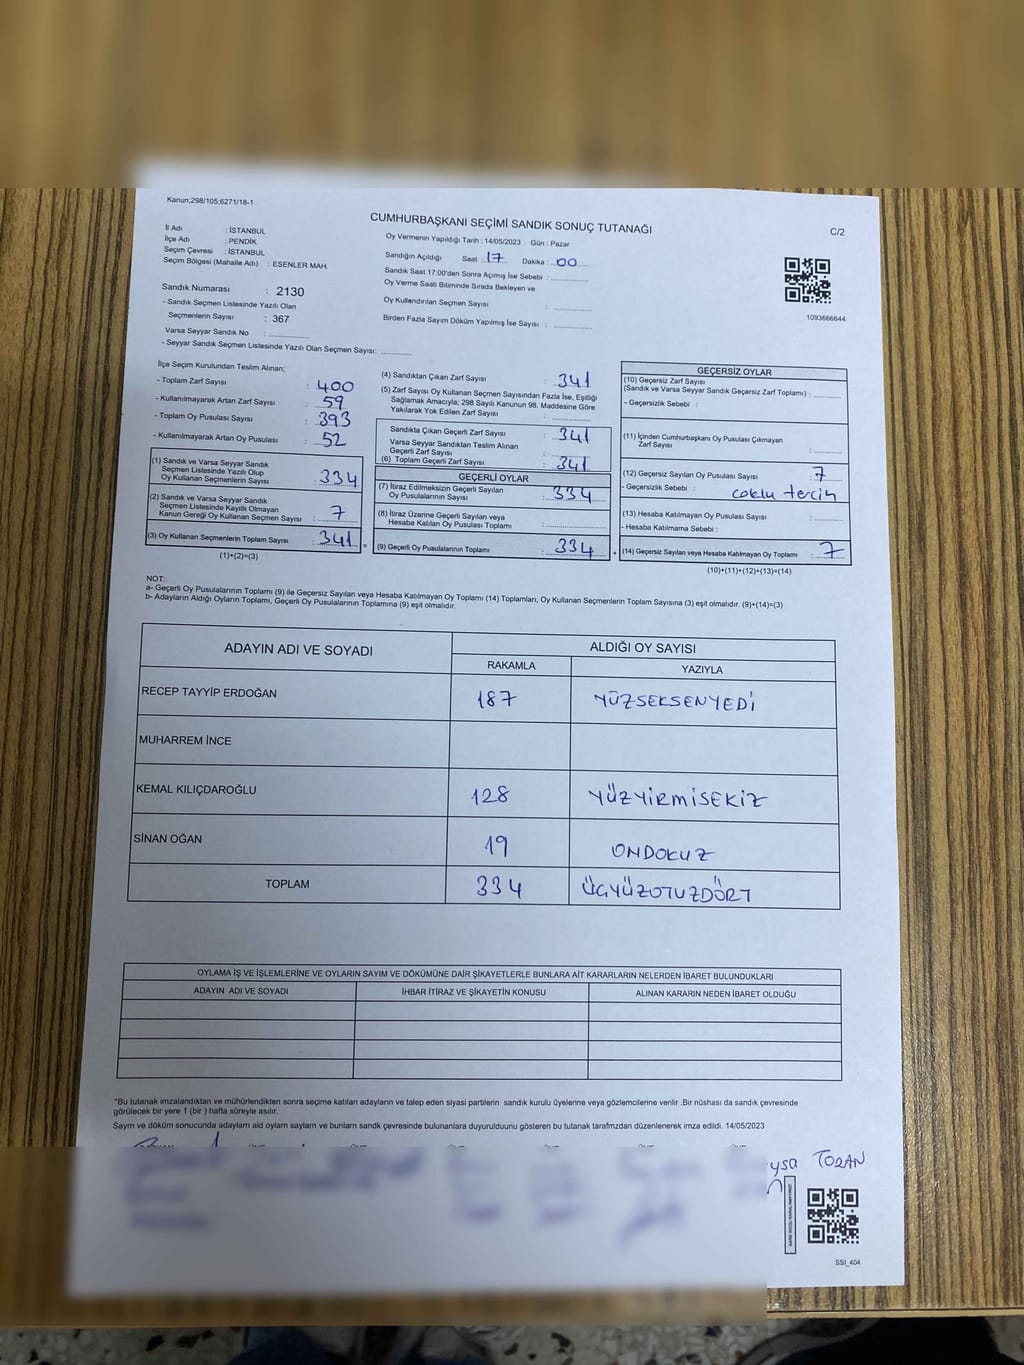 Kanun;298/105;6271/18-1
CUMHURBAŞKANI SEÇİMİ SANDIK SONUÇ TUTANAĞI
C/2
İl Adı : İSTANBUL
İlçe Adı : PENDİK
Seçim Çevresi : İSTANBUL
Seçim Bölgesi (Mahalle Adı) : ESENLER MAH.
Sandık Numarası : 2130
- Sandık Seçmen Listesinde Yazılı Olan
Seçmenlerin Sayısı : 367
Varsa Seyyar Sandık No :
- Seyyar Sandık Seçmen Listesinde Yazılı Olan Seçmen Sayısı:
Oy Vermenin Yapıldığı Tarih : 14/05/2023 Gün : Pazar
Sandığın Açıldığı Saat : 17 Dakika : 00
Sandık Saat 17:00'den Sonra Açımış İse Sebebi :
Oy Verme Saati Bitiminde Sırada Bekleyen ve
Oy Kullandırılan Seçmen Sayısı :
Birden Fazla Sayım Döküm Yapılmış İse Sayısı :
1093666644
İlçe Seçim Kurulundan Teslim Alınan;
- Toplam Zarf Sayısı : 400
- Kullanılmayarak Artan Zarf Sayısı : 59
- Toplam Oy Pusulası Sayısı : 393
- Kullanılmayarak Artan Oy Pusulası : 52
(1) Sandık ve Varsa Seyyar Sandık
Seçmen Listesinde Yazılı Olup
Oy Kullanan Seçmenlerin Sayısı : 334
(2) Sandık ve Varsa Seyyar Sandık
Seçmen Listesinde Kayıtlı Olmayan
Kanun Gereği Oy Kullanan Seçmen Sayısı : 7
(3) Oy Kullanan Seçmenlerin Toplam Sayısı : 341
(1)+(2)=(3)
(4) Sandıktan Çıkan Zarf Sayısı : 341
(5) Zarf Sayısı Oy Kullanan Seçmen Sayısından Fazla İse, Eşitliği
Sağlamak Amacıyla; 298 Sayılı Kanunun 98. Maddesine Göre
Yakılarak Yok Edilen Zarf Sayısı :
Sandıkta Çıkan Geçerli Zarf Sayısı : 341
Varsa Seyyar Sandıktan Teslim Alınan
Geçerli Zarf Sayısı :
(6) Toplam Geçerli Zarf Sayısı : 341
GEÇERLİ OYLAR
(7) İtiraz Edilmeksizin Geçerli Sayılan
Oy Pusulalarının Sayısı : 334
(8) İtiraz Üzerine Geçerli Sayılan veya
Hesaba Katılan Oy Pusulası Toplamı :
= (9) Geçerli Oy Pusulalarının Toplamı : 334
GEÇERSİZ OYLAR
(10) Geçersiz Zarf Sayısı
(Sandık ve Varsa Seyyar Sandık Geçersiz Zarf Toplamı) :
- Geçersizlik Sebebi :
(11) İçinden Cumhurbaşkanı Oy Pusulası Çıkmayan
Zarf Sayısı :
(12) Geçersiz Sayılan Oy Pusulası Sayısı : 7
- Geçersizlik Sebebi : coklu tercih
(13) Hesaba Katılmayan Oy Pusulası Sayısı :
- Hesaba Katılmama Sebebi :
+ (14) Geçersiz Sayılan veya Hesaba Katılmayan Oy Toplamı : 7
(10)+(11)+(12)+(13)=(14)
NOT:
a- Geçerli Oy Pusulalarının Toplamı (9) ile Geçersiz Sayılan veya Hesaba Katılmayan Oy Toplamı (14) Toplamları, Oy Kullanan Seçmenlerin Toplam Sayısına (3) eşit olmalıdır. (9)+(14)=(3)
b- Adayların Aldığı Oyların Toplamı, Geçerli Oy Pusulalarının Toplamına (9) eşit olmalıdır.
ADAYIN ADI VE SOYADI
ALDIĞI OY SAYISI
RAKAMLA YAZIYLA
RECEP TAYYİP ERDOĞAN 187 YÜZSEKSENYEDİ
MUHARREM İNCE
KEMAL KILIÇDAROĞLU 128 YÜZYİRMİSEKİZ
SİNAN OĞAN 19 ONDOKUZ
TOPLAM 334 ÜÇYÜZOTUZDÖRT
OYLAMA İŞ VE İŞLEMLERİNE VE OYLARIN SAYIM VE DÖKÜMÜNE DAİR ŞİKAYETLERLE BUNLARA AİT KARARLARIN NELERDEN İBARET BULUNDUKLARI
ADAYIN ADI VE SOYADI İHBAR İTİRAZ VE ŞİKAYETİN KONUSU ALINAN KARARIN NEDEN İBARET OLDUĞU
*Bu tutanak imzalandıktan ve mühürlendikten sonra seçime katılan adayların ve talep eden siyasi partilerin sandık kurulu üyelerine veya gözlemcilerine verilir .Bir nüshası da sandık çevresinde
görülecek bir yere 1 (bir ) hafta süreyle asılır.
Sayım ve döküm sonucunda adayların aldı oyların sayların ve bunların sandk çevresinde bulunanlara duyurulduunu gösteren bu tutanak tarafmzdan düzenlenerek imza edildi. 14/05/2023
ysa TOZAN
SSİ_404